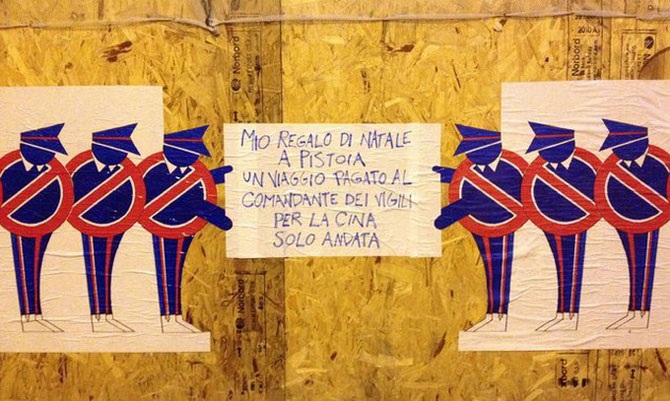 MIO REGALO DI NATALE
A PISTOIA
UN VIAGGIO PAGATO AL
COMANDANTE DEI VIGILI
PER LA CINA
SOLO ANDATA
Norbord
Norbord
2010A
Norbord